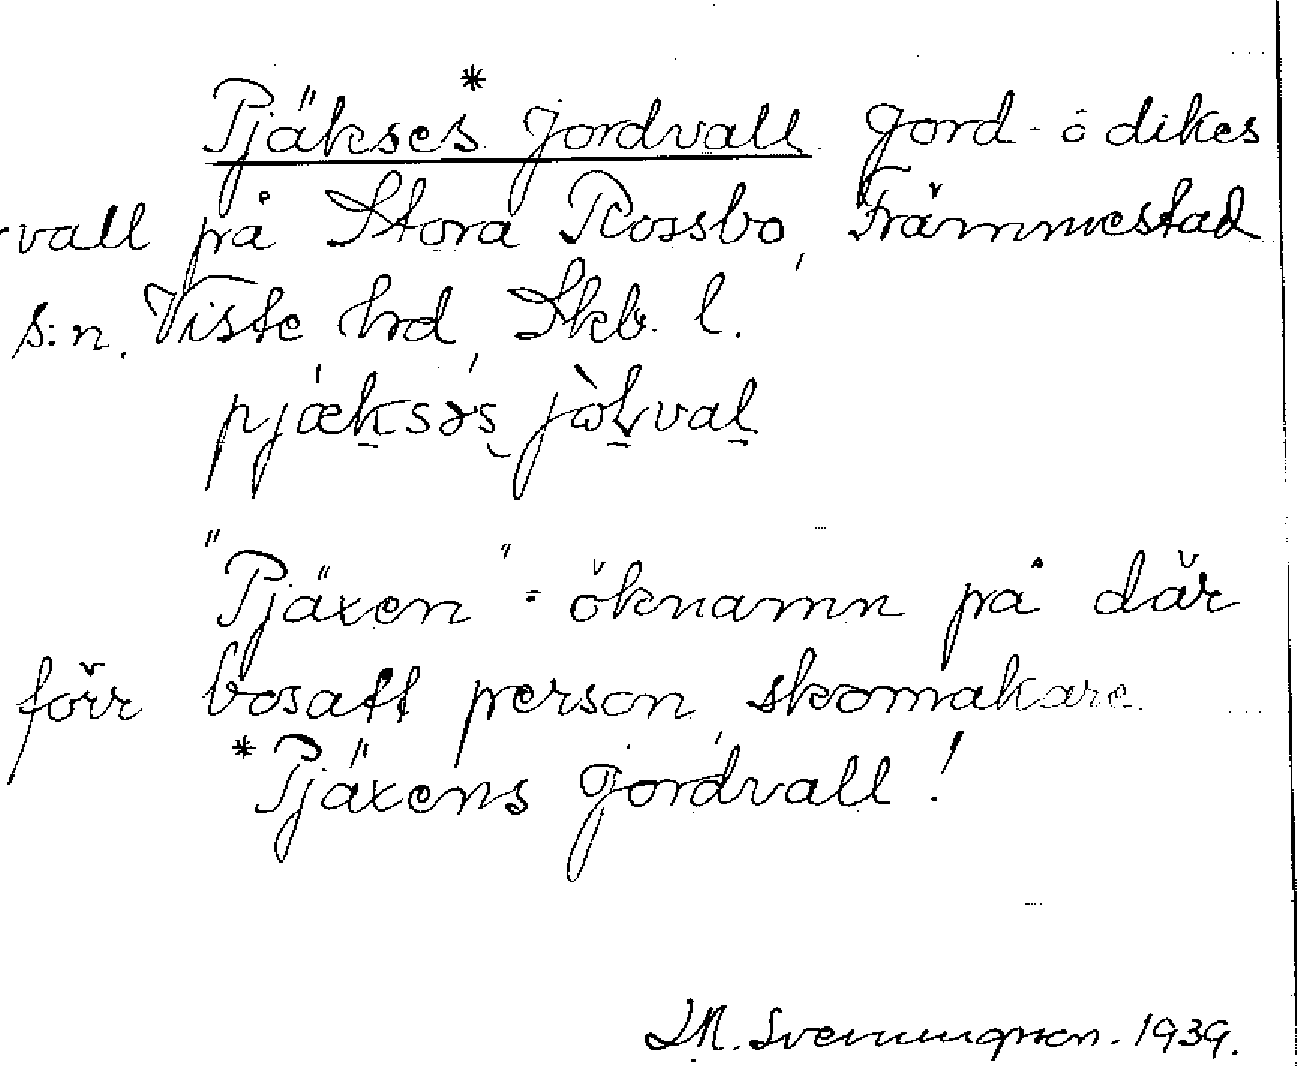 Pjäkses* jordvall Jord- o dikes
-vall på Stora Rossbo, Främmestad
s:n. Viste hd, Skb. l.
pjæksəs jòḷval
"Pjäxen" = öknamn på där
förr bosatt person, skomakare.
*Pjäxens jordvall!
Svenungsson. 1939.